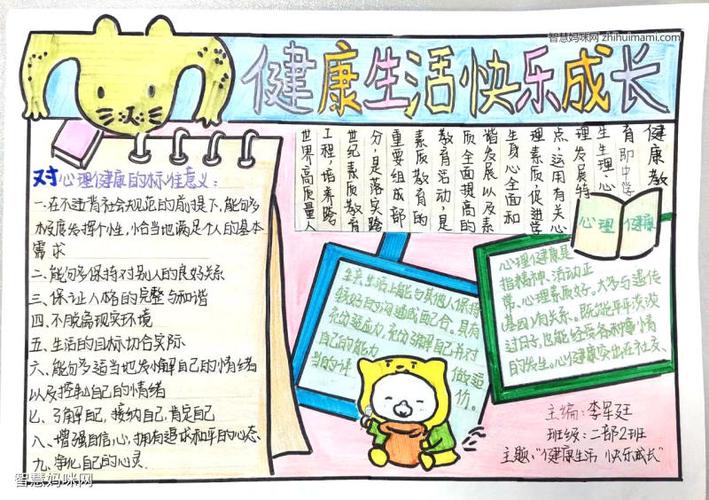 智慧妈咪网 zhihuimami.com
健康生活快乐成长
健康教
有即中学
生生理心
理发展特
点，运用有关心
理素质，促进学
生身心全面和
谐发展以及素
质全面提高的
教育活动，是
素质教育的
重要组成部
分，是落实跨
世纪素质教育
工程，培养跨
世界高质量人
对心理健康的标准意义：
一.在不违背社会规范的前提下，能够多
发挥个性，恰当地满足个人的基本
需求
二、能够多保持对别人的良好关系
三、保证人格的完整与和谐
四、不脱离现实环境
五、生活的目标切合实际
六、能够多适当地发情解自己的情绪
以及控制自己的情绪
七、了解自己，接纳自己，肯定自己
八、增强自信心，拥有追求和平的心态
九、净化自己的心灵.
心理 健康
生上能与其他人保持
较好的沟通或配合。具有
充分适应力，充分
自己的能力 做适
当的评 价。
心理健康是
指精神、活动正
常、心理素质好。大多与遗传
基因有关系。既能平淡淡
过日子，也能经受各种事情
的发生。心理健康突出在社交、
主编：李军廷
班级：二部2班
主题：“健康生活 快乐成长”
智慧妈咪网